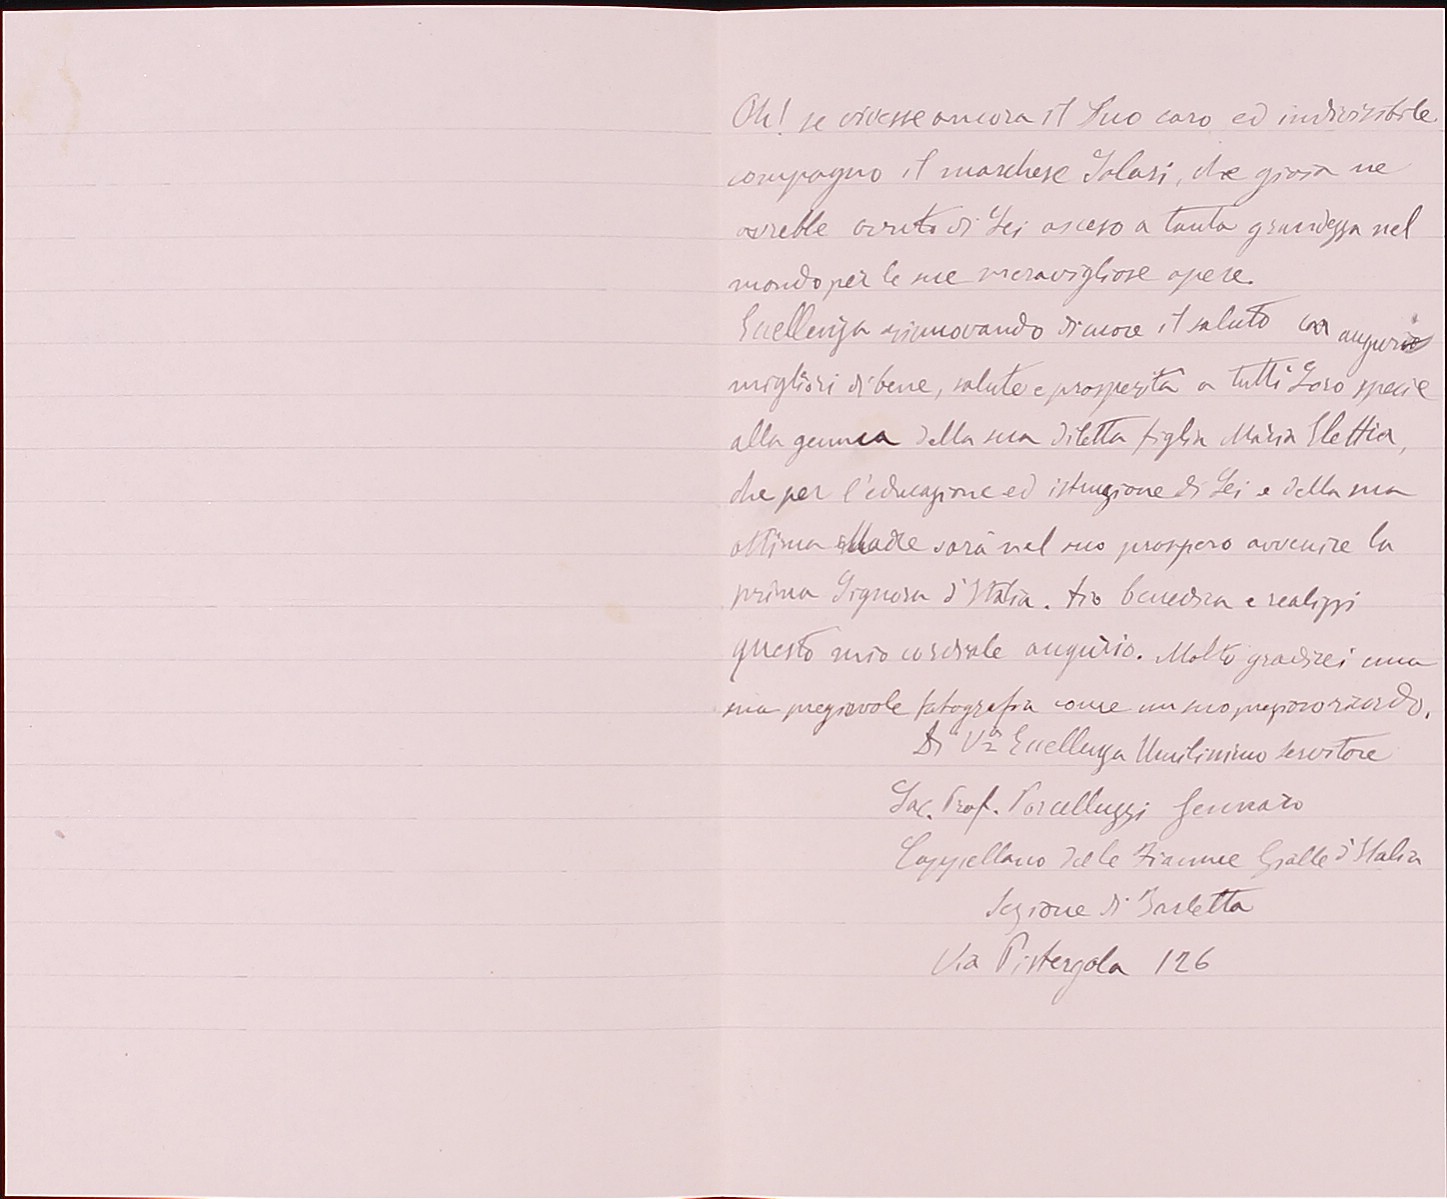 Oh! se vivesse ancora il Suo caro ed indivisibile
compagno il marchese Solari, che gioia ne
avrebbe avuto di Lei asceso a tanta grandezza nel
mondo per le sue meravigliose opere.
Eccellenza rinnovando di cuore il saluto con augurii
migliori di bene, salute e prosperità a tutti Loro specie
alla gemma della sua diletta figlia Maria Elettra,
che per l'educazione ed istruzione di Lei e della sua
ottima Madre sarà nel suo prospero avvenire la
prima Signora d'Italia. Iio benedica e realizzi
questo mio cordiale augurio. Molto gradirei una
sua pregievole fotografia come un suo prezioso ricordo.
Di Va Eccellenza Umilissimo servitore
Sac. Prof. Porcelluzzi Gennaro
Cappellano delle Fiamme Gialle d'Italia
Sezione di Barletta
Via Pistergola 126